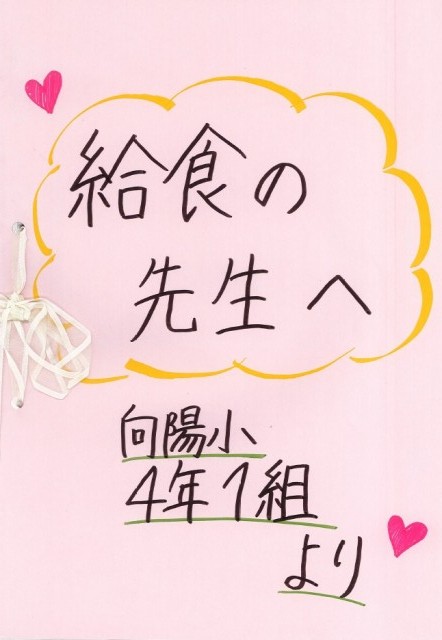 給食の
先生へ
向陽小
4年1組
より